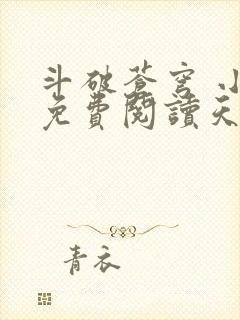 斗破苍穹 小
免費閱讀天
青衣